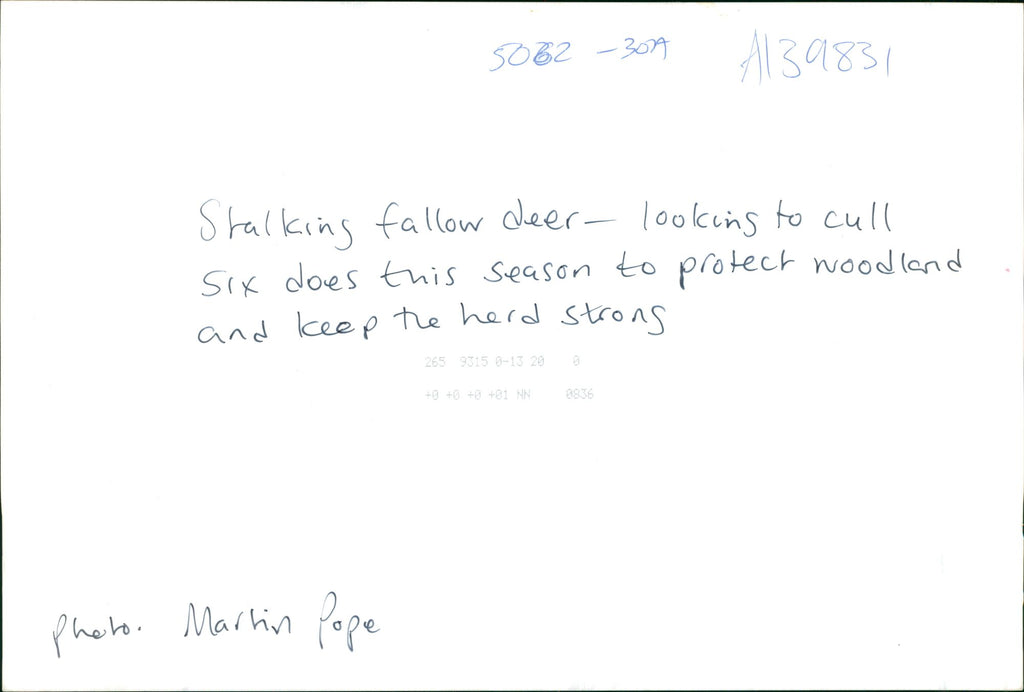 5062 -30A A139831
Stalking fallow deer— looking to cull
six does this season to protect woodland
and keep the herd strong
265 9315 0-13 20 0
+0 +0 +0 +01 NN 0836
photo. Martin Pope